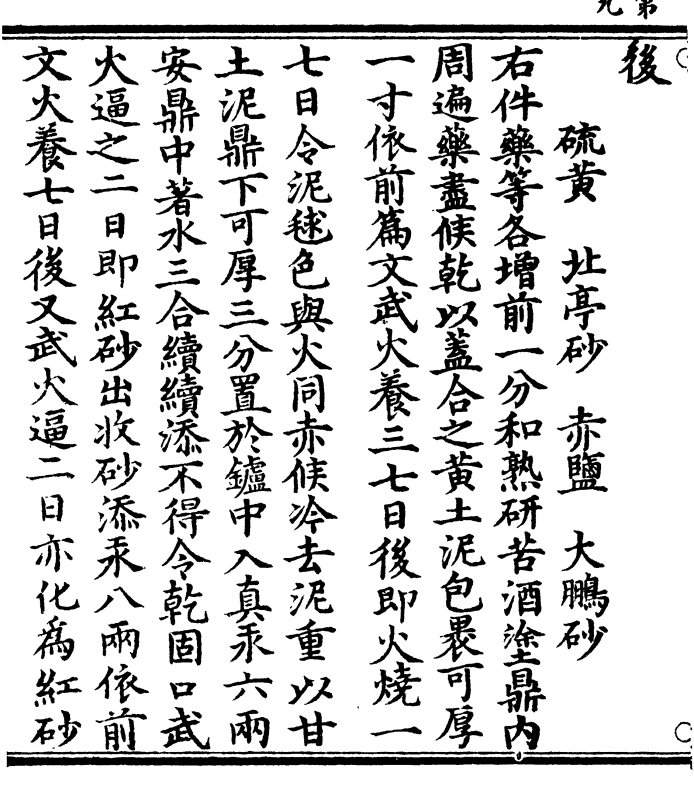 第九
後
硫黄　北亭砂　赤鹽　大鵬砂
右件藥等各增前一分和熟研苦酒塗鼎内
周遍藥盡候乾以蓋合之黄土泥包裹可厚
一寸依前篇文武火養三七日後即火燒一
七日令泥毬色與火同赤候冷去泥重以甘
土泥鼎下可厚三分置於鑪中入真汞六兩
安鼎中著水三合續續添不得令乾固口武
火逼之二日即紅砂出收砂添汞八兩依前
文火養七日後又武火逼二日亦化爲紅砂